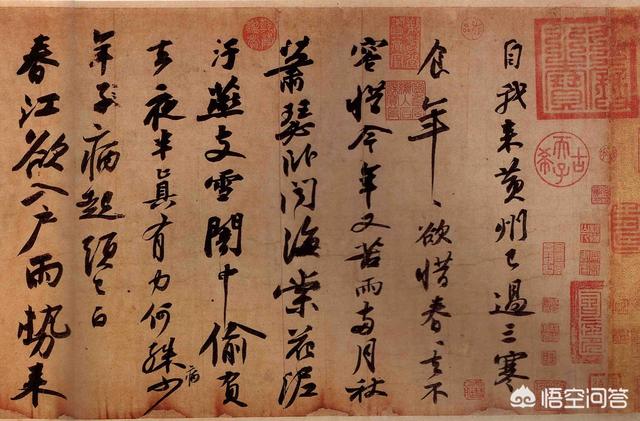 自我来黄州已過三寒
食年〻欲惜春〻去不
容惜今年又苦雨兩月秋
蕭瑟卧聞海棠花泥
汙燕支雪闇中偷負
去夜半真有力何殊少
病
年子病起頭已白
春江欲入戶雨勢来
古希天子
悟空问答